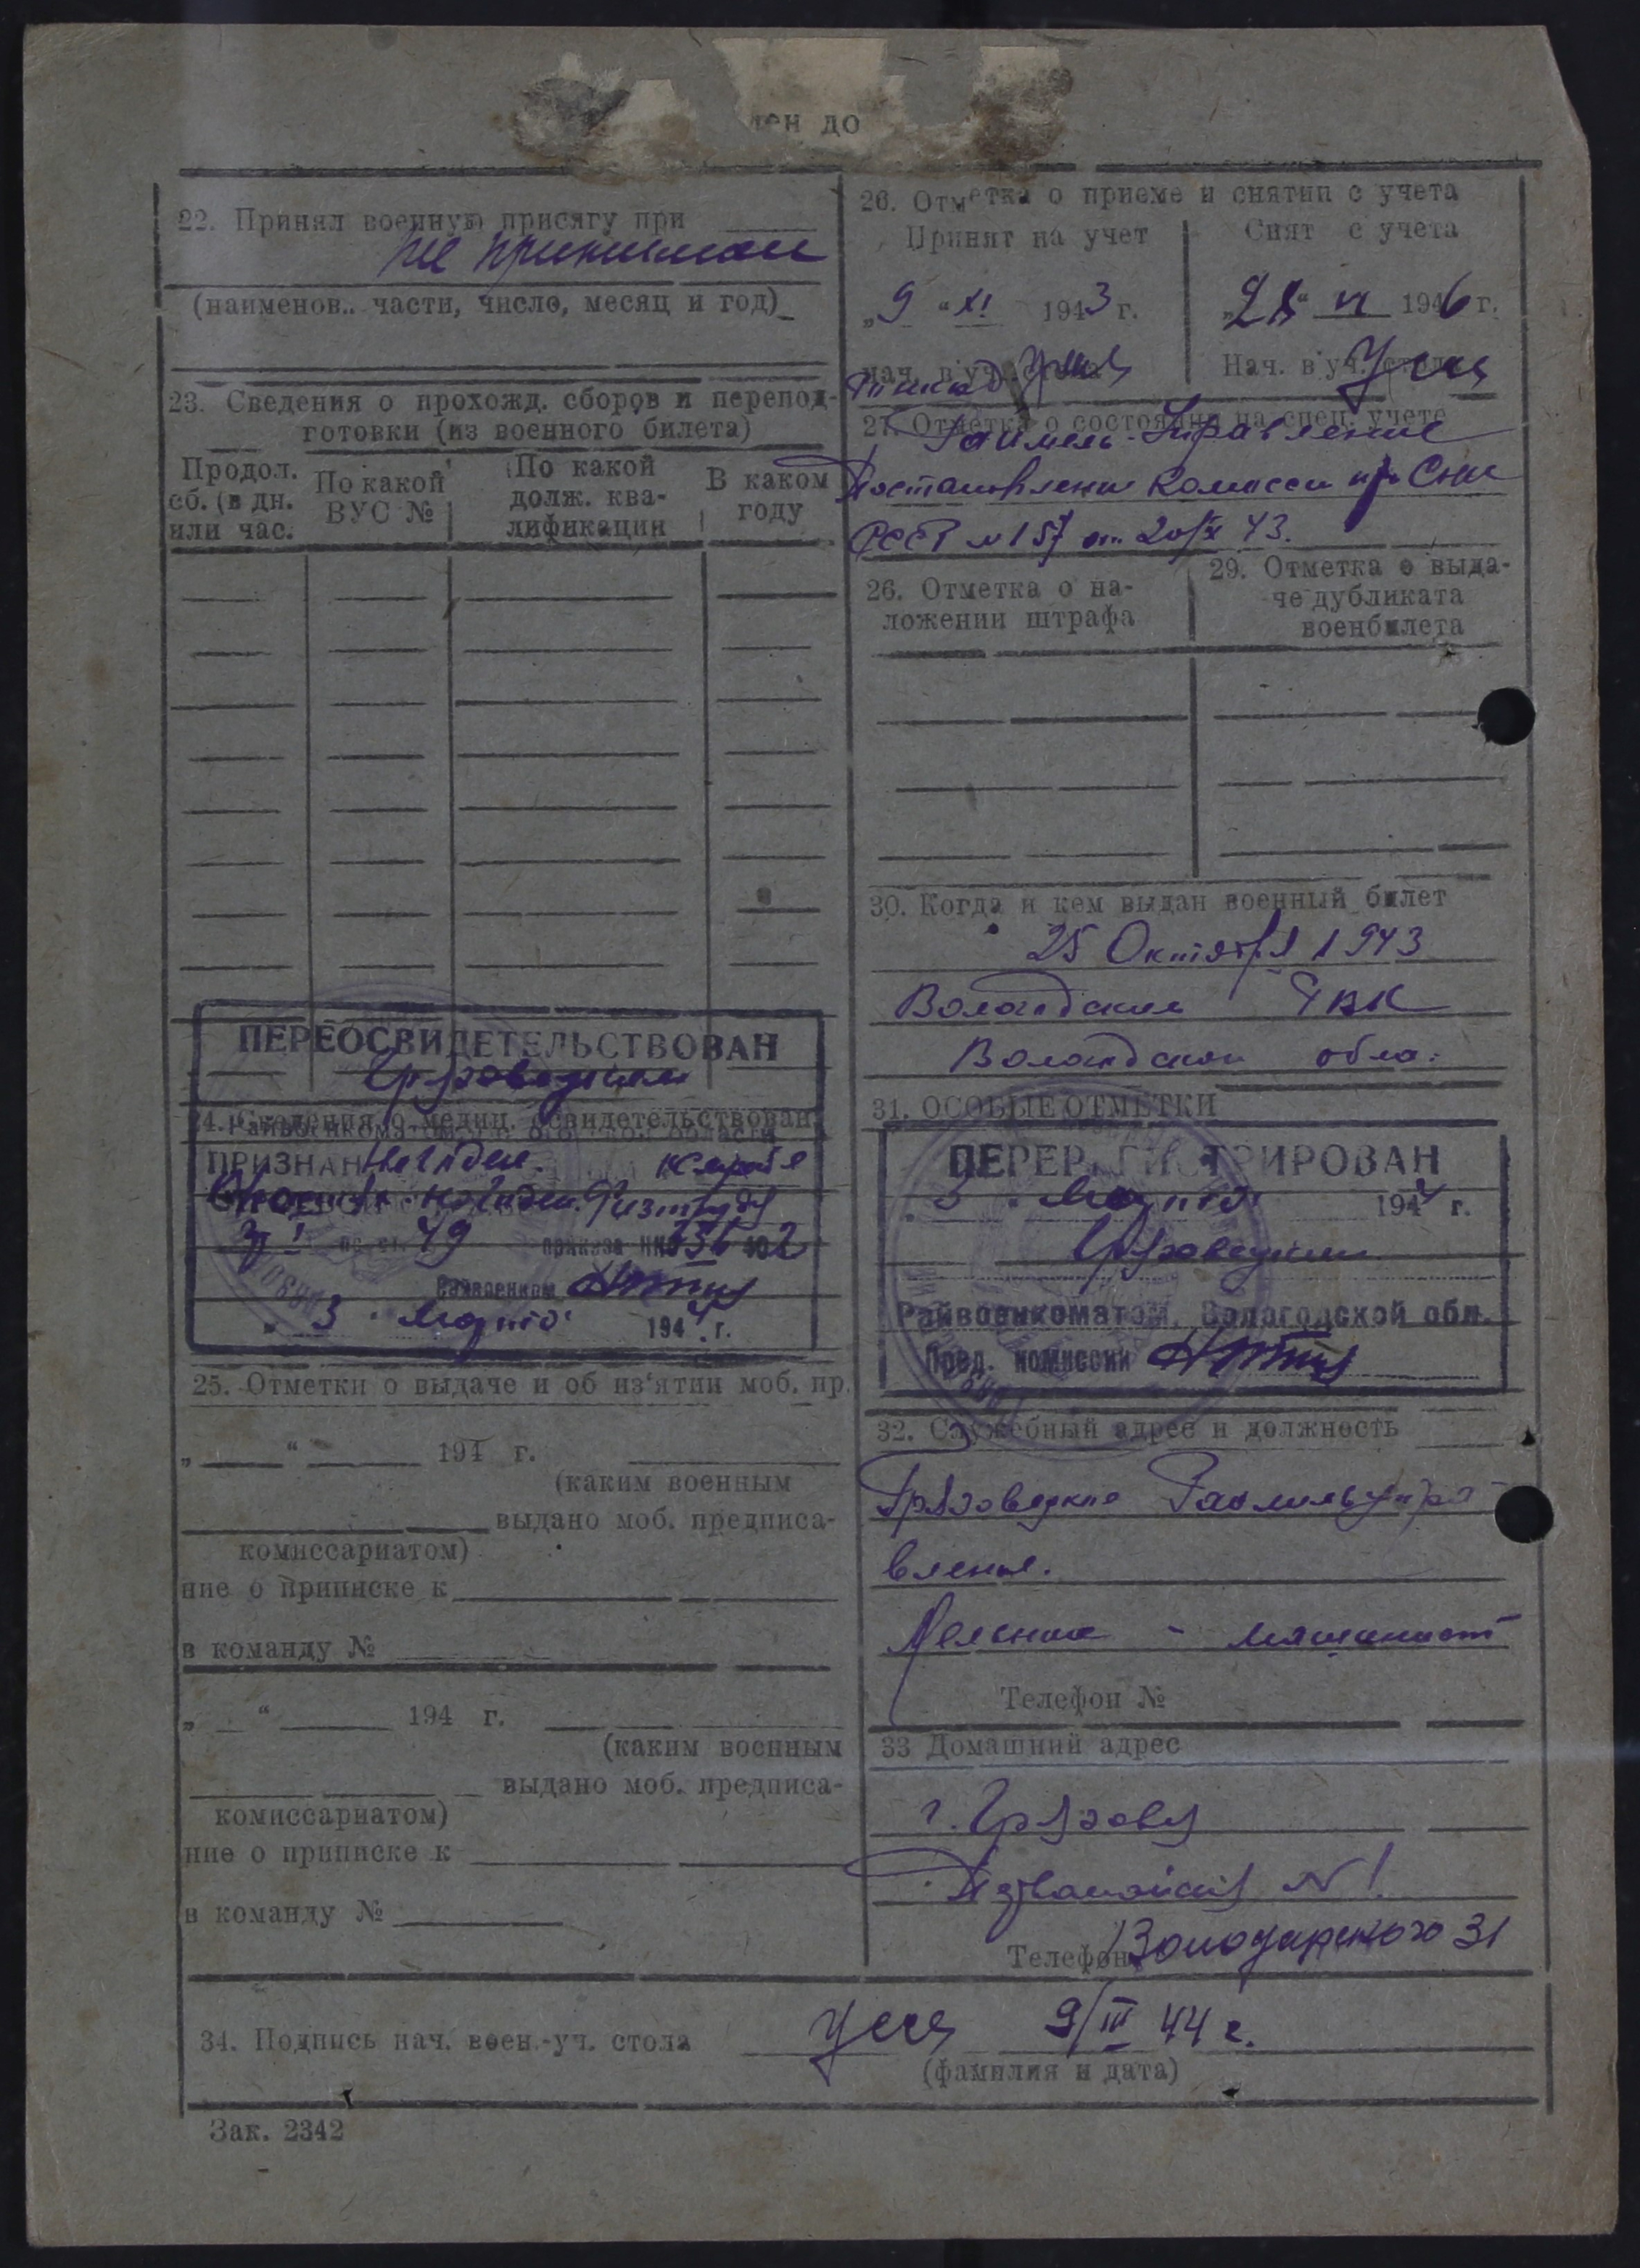 ен до
22. Принял военную присягу при
не принимал
(наименов.. части, число, месяц и год)
23. Сведения о прохожд. сборов и перепод-
готовки (из военного билета)
Продол.
сб. (в дн.
или час.
По какой
ВУС №
По какой
долж. ква-
лификации
В каком
году
ПЕРЕОСВИДЕТЕЛЬСТВОВАН
Грязовецким
24. Сведения о медиц. освидетельствован.
ПРИЗНАН
гр. I по ст. 49 приказа НКО 336 1942
Райвоенком
„ 3 " Марта 1944 г.
25. Отметки о выдаче и об из'ятии моб. пр.
„ " 194 г.
(каким военным
выдано моб. предписа-
комиссариатом)
ние о приписке к
в команду №
„ " 194 г.
(каким военным
выдано моб. предписа-
комиссариатом)
ние о приписке к
в команду №
26. Отметка о приеме и снятии с учета
Принят на учет
Снят с учета
„9 " XI 1943 г.
„28" VI 1946 г.
Нач. в уч. стола
Нач. в уч. стола
27. Отметка о состоянии на спец. учете
Раймель. Управление
Постановление Комиссии при СНК
СССР №157 от 20/XI 43.
26. Отметка о на-
ложении штрафа
29. Отметка о выда-
че дубликата
военбилета
30. Когда и кем выдан военный билет
25 Октября 1943
Вологодским РВК
Вологодской обла.
31. ОСОБЫЕ ОТМЕТКИ
ПЕРЕРЕГИСТРИРОВАН
„ 3 " Марта 1944 г.
Грязовецким
Райвоенкоматом, Вологодской обл.
Пред. комиссии
32. Служебный адрес и должность
Грязовецкое Раймельупра
вленье.
Мельник - машинист
Телефон №
33 Домашний адрес
г. Грязовец
№ 1
Телефон Володарского 31
34. Подпись нач. воен.-уч. стола
9/III 44 г.
(фамилия и дата)
Зак. 2342